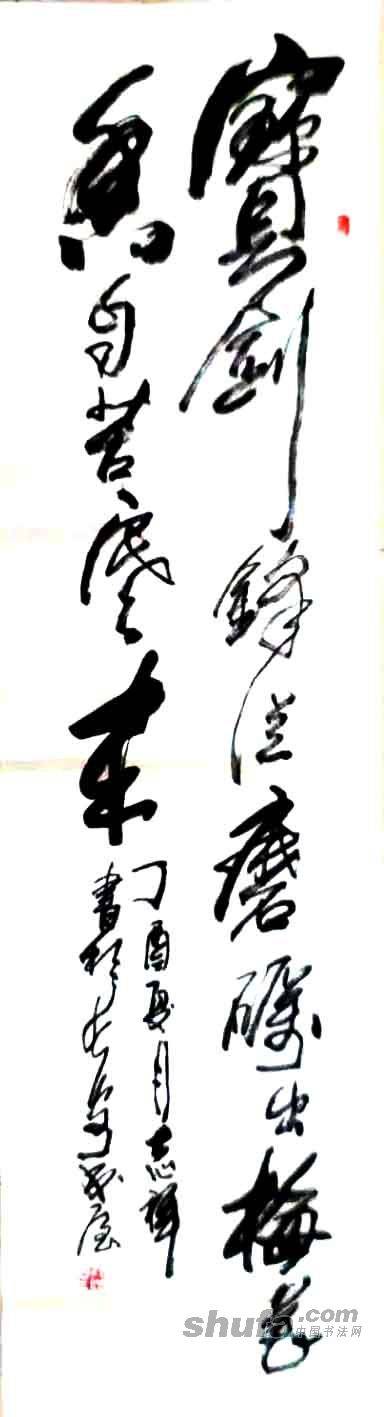 寶劍鋒從磨礪出梅花
香自苦寒來
丁酉夏月志輝
書於長安
shufa.com
中国书法网